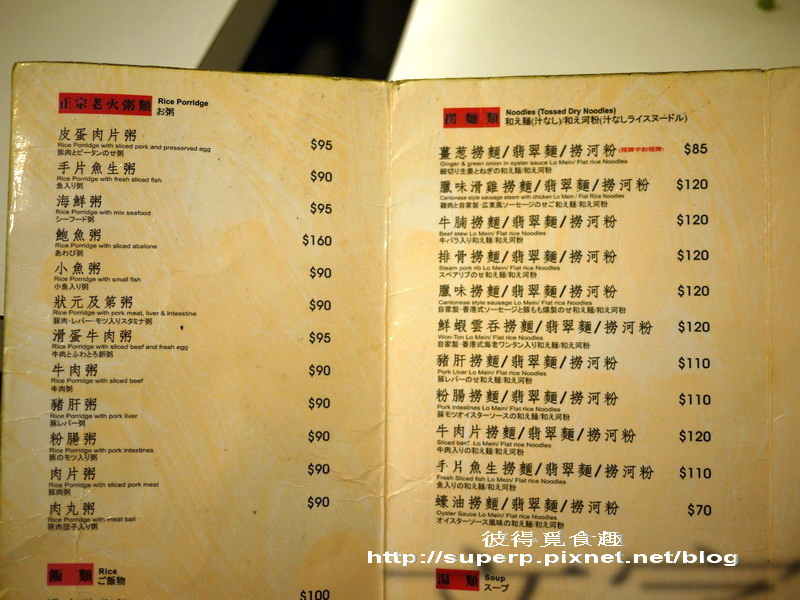 正宗老火粥類 Rice Porridge
お粥
皮蛋肉片粥
Rice Porridge with sliced pork and presserved egg
豚肉とピータンのせ粥
$95
手片魚生粥
Rice Porridge with fresh sliced fish
魚入り粥
$90
海鮮粥
Rice Porridge with mix seafood
シーフード粥
$95
鮑魚粥
Rice Porridge with sliced abalone
あわび粥
$160
小魚粥
Rice Porridge with small fish
小魚入り粥
$90
狀元及第粥
Rice Porridge with pork meat, liver & intesstine
豚肉・レバー・モツ入りスタミナ粥
$90
滑蛋牛肉粥
Rice Porridge with sliced beef and fresh egg
牛肉とふわとろ卵粥
$95
牛肉粥
Rice Porridge with sliced beef
牛肉粥
$90
豬肝粥
Rice Porridge with pork liver
豚レバー粥
$90
粉腸粥
Rice Porridge with pork intestines
豚のモツ入り粥
$90
肉片粥
Rice Porridge with sliced pork meat
豚肉粥
$90
肉丸粥
Rice Porridge with meat ball
豚肉団子入り粥
$90
飯類 Rice
ご飯物
$100
撈麵類 Noodles (Tossed Dry Noodles)
和え麺(汁なし)/和え河粉(汁なしライスヌードル)
薑葱撈麵/翡翠麵/撈河粉(招牌中的招牌)
Ginger & green onion in oyster sauce Lo Mein/ Flat rice Noodles
細切り生姜とねぎの和え麺/和え河粉
$85
臘味滑雞撈麵/翡翠麵/撈河粉
Cantonese style sausage steam with chicken Lo Mein / Flat Rice Noodles
鶏肉と自家製・広東風ソーセージのせご和え麺/和え河粉
$120
牛腩撈麵/翡翠麵/撈河粉
Beef stew Lo Mein/ Flat rice Noodles
牛バラ入り和え麺/和え河粉
$120
排骨撈麵/翡翠麵/撈河粉
Steam pork rib Lo Mein/ Flat rice Noodles
スペアリブのせ和え麺/和え河粉
$120
臘味撈麵/翡翠麵/撈河粉
Cantonese style sausage Lo Mein/ Flat rice Noodles
自家製・香港式ソーセージと豚もも燻製のせ和え麺/和え河粉
$120
鮮蝦雲吞撈麵/翡翠麵/撈河粉
Won-Ton Lo Mein/ Flat rice Noodles
自家製・香港式海老ワンタン入り和え麺/和え河粉
$120
豬肝撈麵/翡翠麵/撈河粉
Pork Liver Lo Mein/ Flat rice Noodles
豚レバーのせ和え麺/和え河粉
$110
粉腸撈麵/翡翠麵/撈河粉
Pork intestines Lo Mein/ Flat rice Noodles
豚モツオイスターソースの和え麺/和え河粉
$110
牛肉片撈麵/翡翠麵/撈河粉
Sliced beef Lo Mein/ Flat rice Noodles
牛肉入りの和え麺/和え河粉
$120
手片魚生撈麵/翡翠麵/撈河粉
Fresh Sliced fish Lo Mein/ Flat rice Noodles
魚入りの和え麺/和え河粉
$110
蠔油撈麵/翡翠麵/撈河粉
Oyster Sauce Lo Mein/ Flat rice Noodles
オイスターソース風味の和え麺/和え河粉
$70
湯類 Soup
スープ
彼得覓食趣
http://superp.pixnet.net/blog